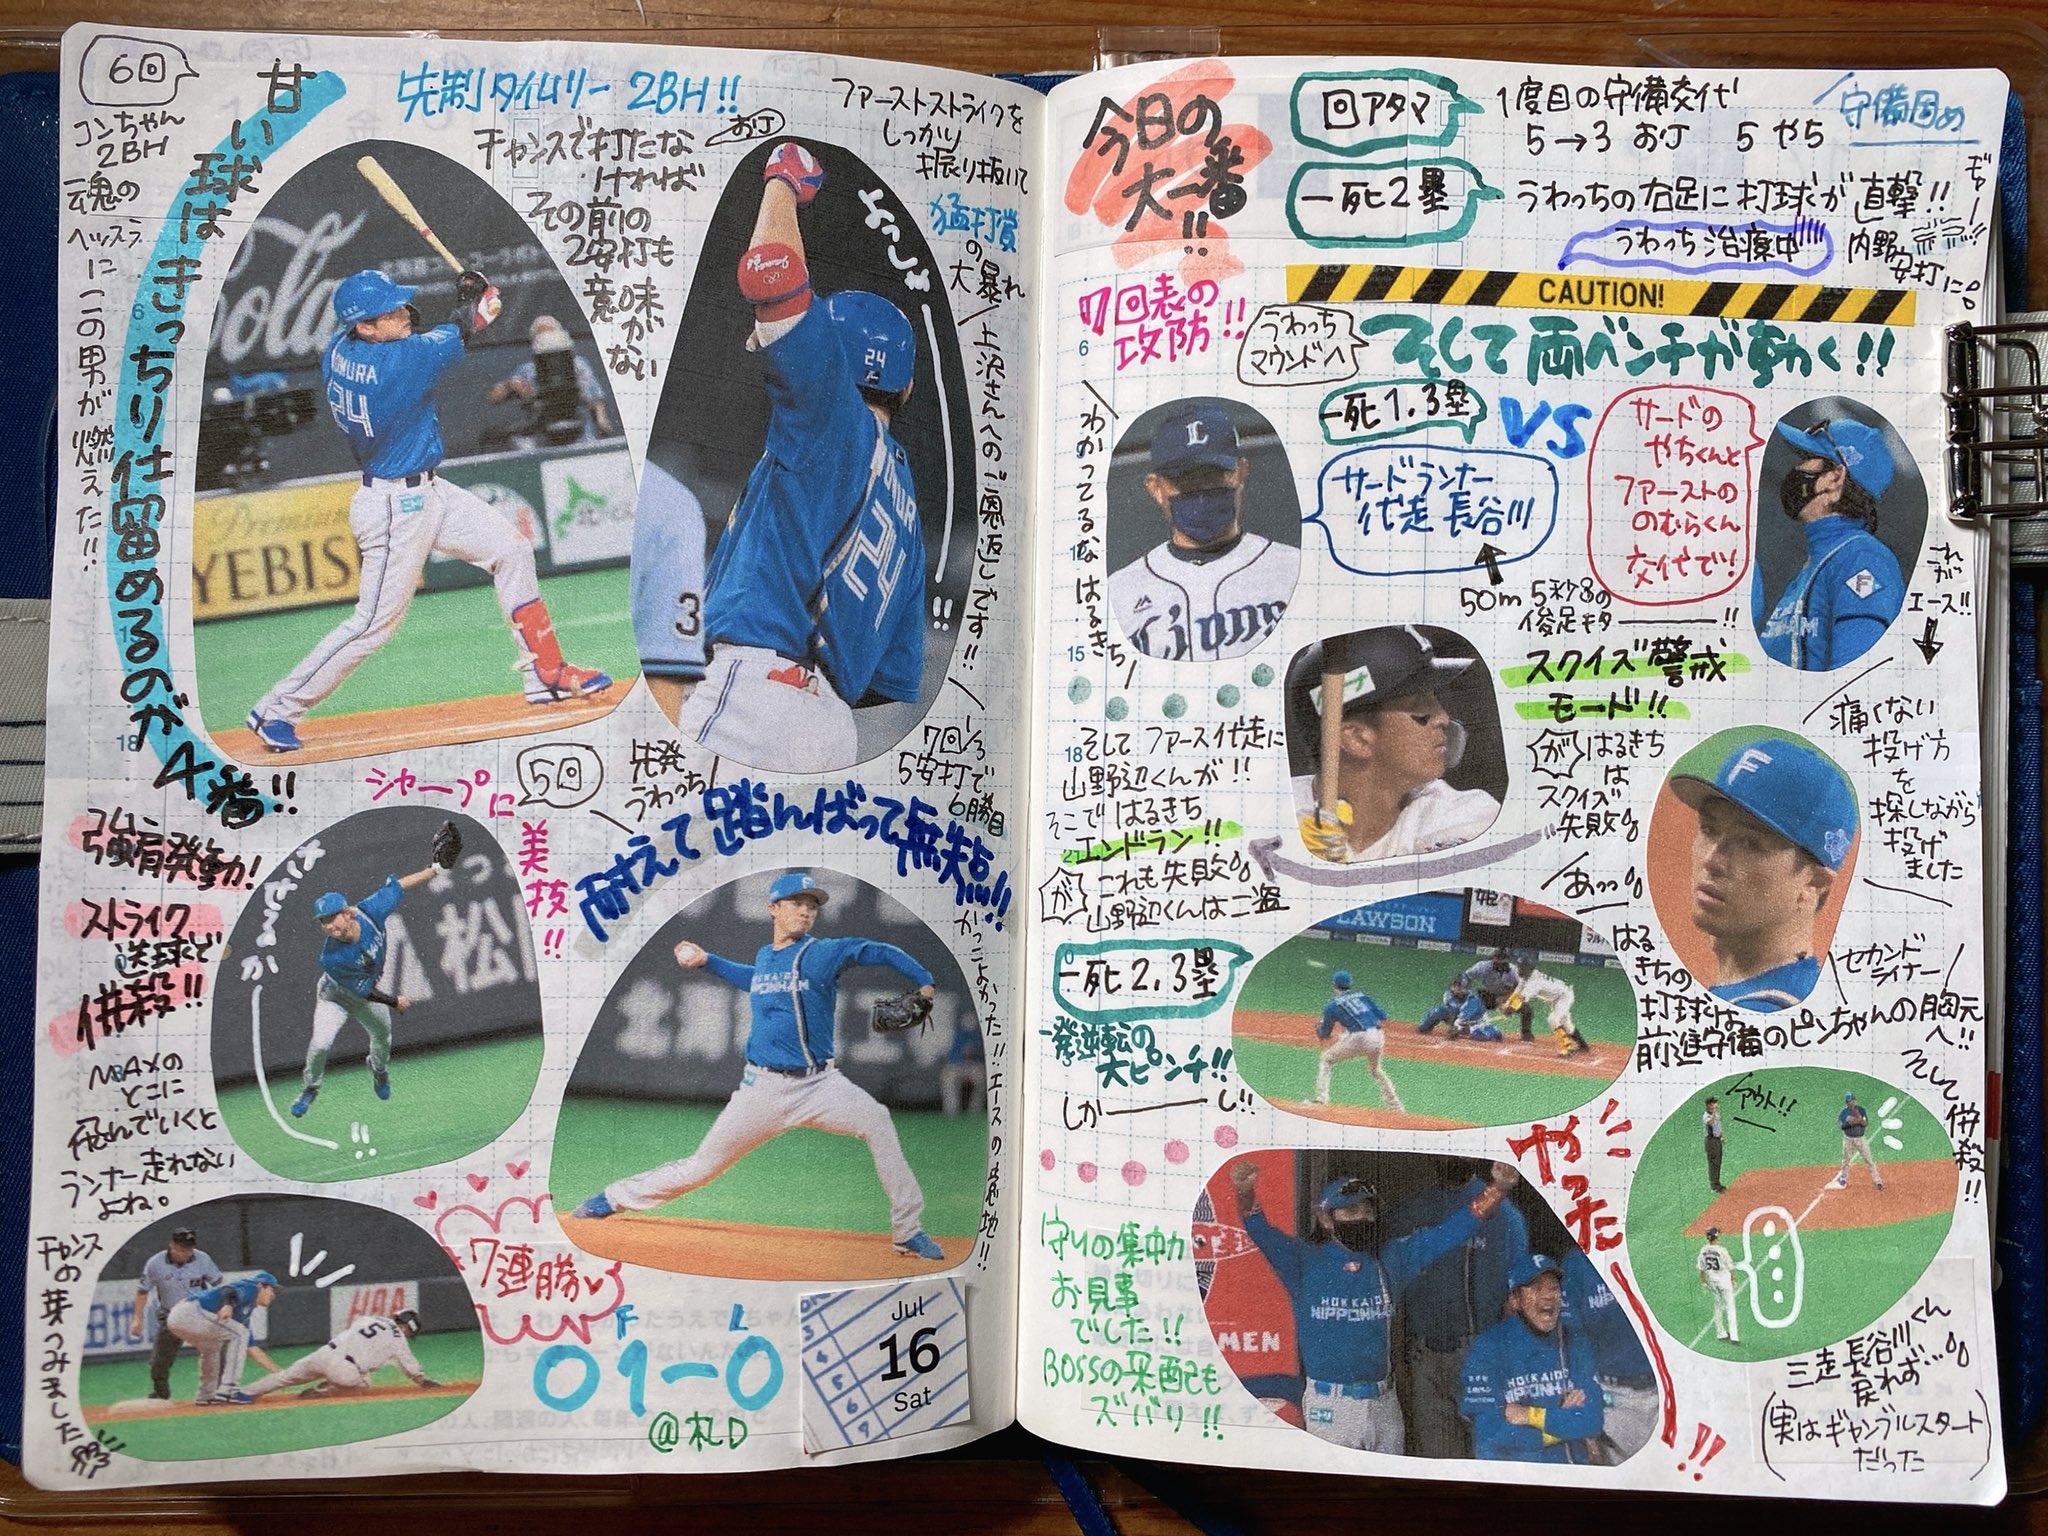 6回
コンちゃん
2BH
魂の
ヘッスラ
にこの男が燃えた!!
甘い球はきっちり仕留めるのが4番!!
先制タイムリー 2BH!!
おJ
チャンスで打たな
ければ
その前の
2安打も
意味が
ない
ファーストストライクを
しっかり
振り抜いて
猛打賞
の
大暴れ
上沢さんへのご恩返しです!!
よっし!!
Cola
NOMURA
24
Premium
YEBISU
24
3
シャープに
美技!!
5回
先発
うわっち
7回1/3
5安打で
6勝目
耐えて踏んばって無失点!!
かっこよかった!!エースの意地!!
強肩発動!
ストライク
送球で
併殺!!
させるか!!
松
MAXの
とこに
飛んでいくと
ランナー走れない
よね。
HOKKAIDO
NIPPONHAM
チャンスの芽つみました
5
7連勝
F L
○1-0
@札D
Jul
16
Sat
今日の
大一番!!
回アタマ
1度目の守備交代
5→3 おJ 5 やち
守備固め
一死2塁
うわっちの右足に打球が直撃!!
うわっち治療中
内野安打に
CAUTION!
7回表の
攻防!!
うわっち
マウンドへ
そして両ベンチが動く!!
わかってるな はるきち
L
Lions
一死1.3塁
VS
サードランナー
代走 長谷川
50m 5秒8の
俊足キター!!
サードの
やちくんと
ファーストの
のむらくん
交代で!
F
これが
エース!!
スクイズ警戒
モード!!
が
はるきち
は
スクイズ
失敗
痛くない
投げ方
を
探しながら
投げ
ました
F
そして ファースト代走に
山野辺くんが!!
そこで はるきち
エンドラン!!
が
これも失敗
山野辺くんは二盗
あっっ
LAWSON
一死2.3塁
一発逆転の
大ピンチ!!
しかーし!!
はる
きちの
打球は
セカンド
ライナー
前進守備のピンちゃんの胸元
へ!!
そして
併殺!!
アウト!!
53
やった!!
守りの集中力
お見事
でした!!
BOSSの采配も
ズバリ!!
MEN
HOKKAIDO
NIPPONHAM
三走 長谷川くん
戻れず...
(実はギャンブルスタート
だった)